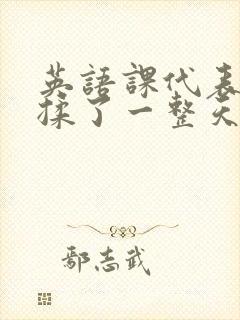 英語課代表
揉了一整天
鄢志武